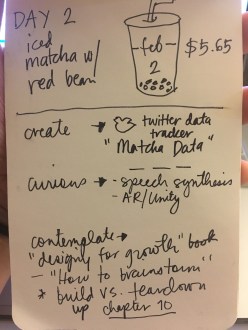 DAY 2
iced
matcha w/
red bean
feb
2
$5.65
create → twitter data
tracker
"Matcha Data"
curious → - speech synthesis
- AR/Unity
contemplate →
"designing for growth" book
- "How to brainstorm"
* build vs. teardown
up chapter 10